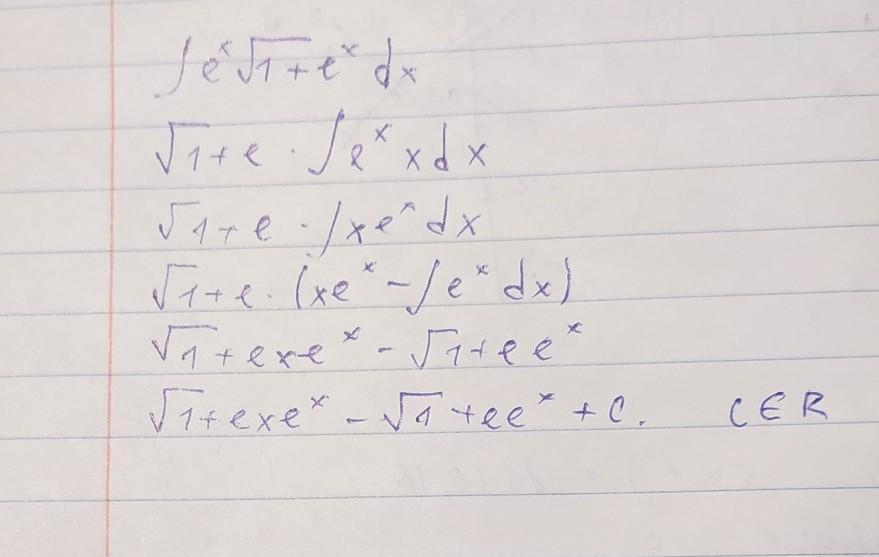 ∫e^x √1+e^x dx
√1+e · ∫e^x x dx
√1+e · ∫xe^x dx
√1+e · (xe^x - ∫e^x dx)
√1+exe^x - √1+ee^x
√1+exe^x - √1+ee^x + C. C∈R